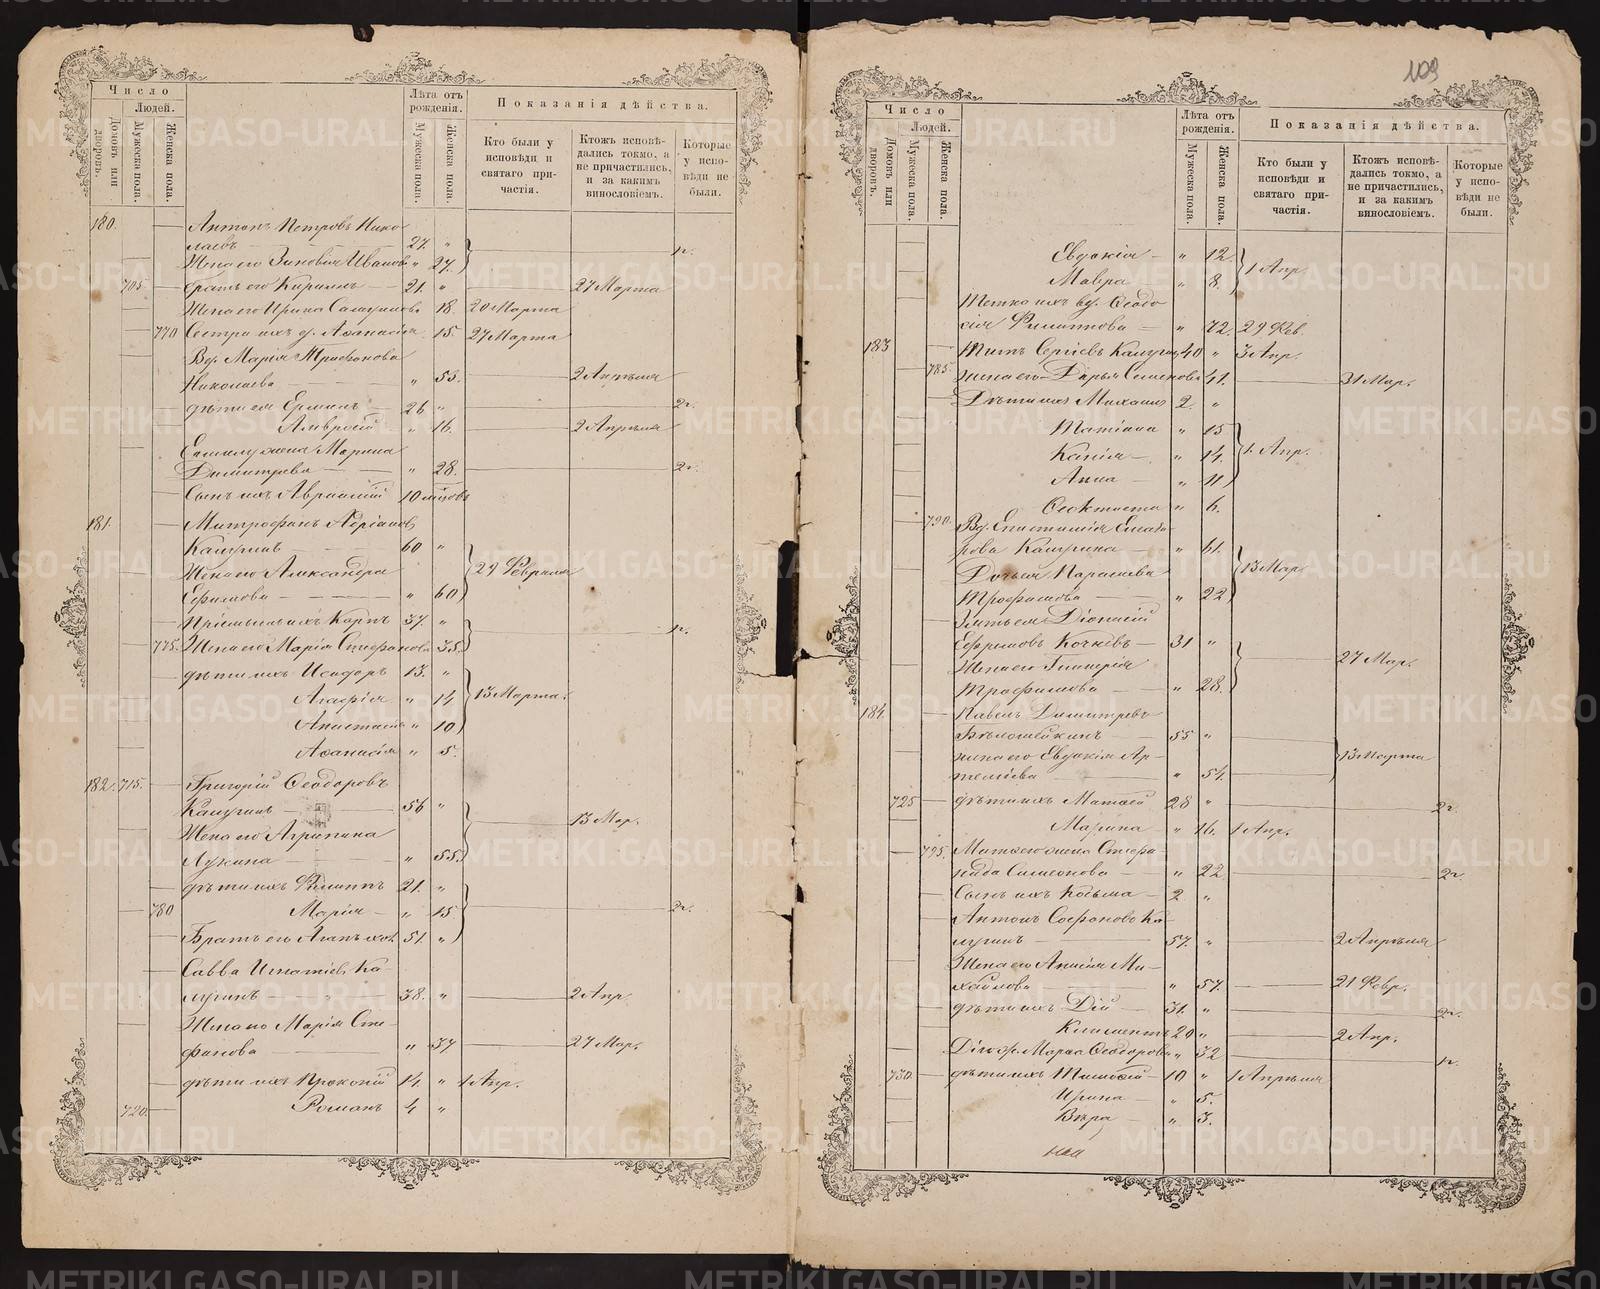 109
Число
Людей.
Домовъ или дворовъ.
Мужеска пола.
Женска пола.
Лѣта отъ рожденія.
Мужеска пола.
Женска пола.
Показанія дѣйства.
Кто были у исповѣди и святаго причастія.
Ктожъ исповѣдались токмо, а не причастились, и за какимъ винословіемъ.
Которые у исповѣди не были.
180. Антонъ Петровъ Нико
лаевъ 27. „
Жена его Зиновія Иванов „ 27.
705 братъ его Кириллъ 21. „ 27 Марта
Жена его Ирина „ 18. 20 Марта
770 Сестра ихъ д. Аѳанасія „ 15. 27 Марта
Вд. Марія Трифонова
Николаева „ 53. 2 Апрѣля
дѣти ея Ермилъ 26 „ 2г.
Амвросій „ 16. 2 Апрѣля
жена Марина
Димитрева „ 28. 2г.
Сынъ ихъ 10
181. Митрофанъ Адріанов
Кашринъ 60 „
Жена его Александра 29 Февраля
Ефимова „ 60
ихъ Карпъ 37. „
775. Жена его Марія Стефанова 35.
дѣти ихъ Исидоръ 13. „
Агафія „ 14. 13 Марта.
Анастасія „ 10
Аѳанасія „ 5.
182. 715. Григорій Ѳеодоровъ
56 „
Жена его Агрипина 13 Мар.
Лукина „ 55.
дѣти ихъ Филиппъ 21. „
780 Марія „ 15 2г.
Братъ его 51. „
Савва Игнатіев. Ка-
38. „ 2 Апр.
Жена его Марія Сте-
фанова „ 37 27 Мар.
дѣти ихъ Прокопій 14. „ 1 Апр.
720. Романъ 4 „
Число
Людей.
Домовъ или дворовъ.
Мужеска пола.
Женска пола.
Лѣта отъ рожденія.
Мужеска пола.
Женска пола.
Показанія дѣйства.
Кто были у исповѣди и святаго причастія.
Ктожъ исповѣдались токмо, а не причастились, и за какимъ винословіемъ.
Которые у исповѣди не были.
Евдокія „ 12. 1 Апр.
Мавра „ 8.
Тетка ихъ вд. Ѳеодо
сія Филиппова „ 72. 29 Фев.
183 Титъ Сергіевъ 40 „ 3 Апр.
785. жена его Дарья Семенова 41. 31 Мар.
Дѣти ихъ Михаилъ 2. „
Татіана „ 15
Ксенія „ 14. 1 Апр.
Анна „ 11
Ѳеоктиста „ 6.
790. Вд. Епистимія
рова „ 61.
Дочь ея Параскева 13 Мар.
Трофимова „ 22
Зять ея Діонисій
Ефремовъ Кочневъ 31 „
Жена его Гликерія 27 Мар.
Трофимова „ 28.
184. Павелъ Димитревъ
Бѣлошейкинъ 55 „
жена его Евдокія Ар- 13 Марта
теміева „ 54.
725 дѣти ихъ Матвей 28 „ 2г.
Марина „ 16. 1 Апр.
795. Матвея жена Стефа
нида Симеонова „ 22 2г.
Сынъ ихъ Козьма 2 „
Антонъ Софоновъ Ка-
57. „ 2 Апрѣля
Жена его Анисія Ми-
хайлова „ 57. 21 Февр.
дѣти ихъ Дій 31. „ 2г.
Климентъ 20 „ 2 Апр.
Дія ж. Марѳа Ѳеодорова „ 32
730. дѣти ихъ Тимоѳей 10 „ 1 Апрѣля
Ирина „ 5.
Вѣра „ 3.
METRIKI.GASO-URAL.RU